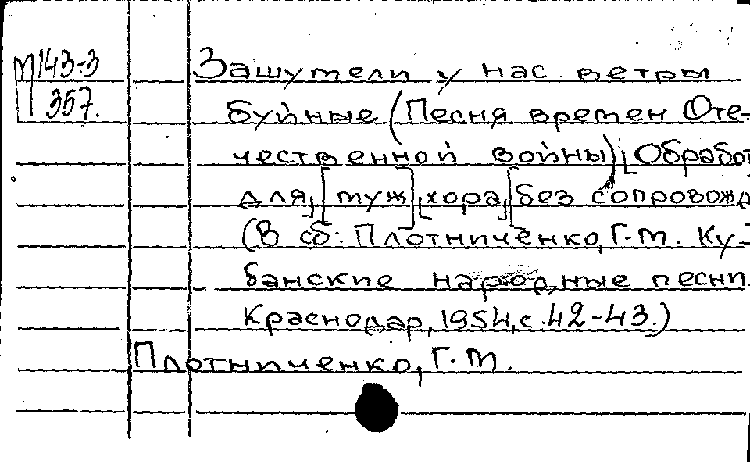 М143-3
357.
Зашумели у нас ветры
буйные (Песня времен Оте-
чественной войны). [Обработ
для] [муж] [хора] [без сопровожд
(В сб: Плотниченко, Г.М. Ку-
банские народные песни.
Краснодар, 1954, с. 42-43.)
Плотниченко, Г.М.